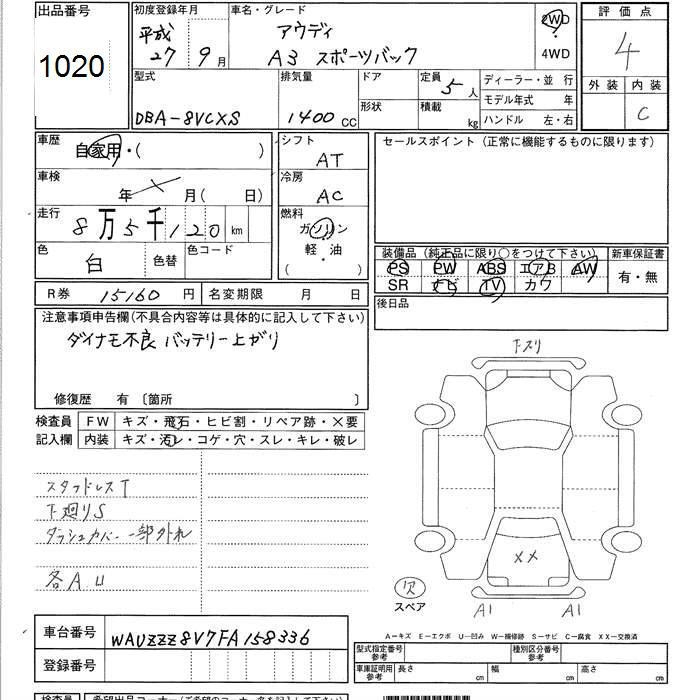 出品番号
1020
初度登録年月
平成
27 9月
車名・グレード
アウディ
A3 スポーツバック
2WD
・
4WD
評価点
4
外装 内装
C
型式
DBA-8VCXS
排気量
1400 CC
ドア
形状
定員 5人
積載 kg
ディーラー・並 行
モデル年式 年
ハンドル 左・右
車歴
自家用・( )
車検
年 月( 日)
走行
8万5千120 km
色
白
色替
色コード
シフト
AT
冷房
AC
燃料
ガソリン
軽・油
( )
セールスポイント(正常に機能するものに限ります)
装備品(純正品に限り○をつけて下さい)
PS PW ABS エアB AW
SR ナビ TV カワ
新車保証書
有・無
R券 15160 円
名変期限 月 日
後日品
注意事項申告欄(不具合内容等は具体的に記入して下さい)
ダイナモ不良 バッテリー上がり
修復歴 有 〔箇所 〕
検査員
記入欄
FW キズ・飛石・ヒビ割・リペア跡・×要
内装 キズ・汚レ・コゲ・穴・スレ・キレ・破レ
スタッドレスT
下廻りS
ダッシュカバー一部外れ
各AU
下スリ
××
欠
スペア
A1
A1
A-キズ E-エクボ U-凹み W-補修跡 S-サビ C-腐食 XX-交換済
車台番号 WAUZZZ8V7FA158336
登録番号
型式指定番号
参考
種別区分番号
参考
車庫証明用
参考
長さ cm
幅 cm
高さ cm
検査員
希望出品コーナー(ご希望のコーナー名を